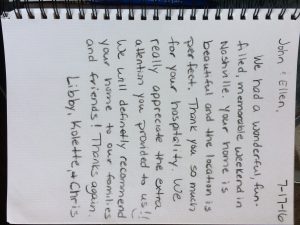 7-17-16
John & Ellen,
We had a wonderful fun-
filled, memorable weekend in
Nashville. Your home is
beautiful and the location is
perfect. Thank you so much
for your hospitality. We
really appreciate the extra
attention you provided to us!!
We will definetly recommend
your home to our families
and friends! Thanks again.
Libby, Kolette, & Chris